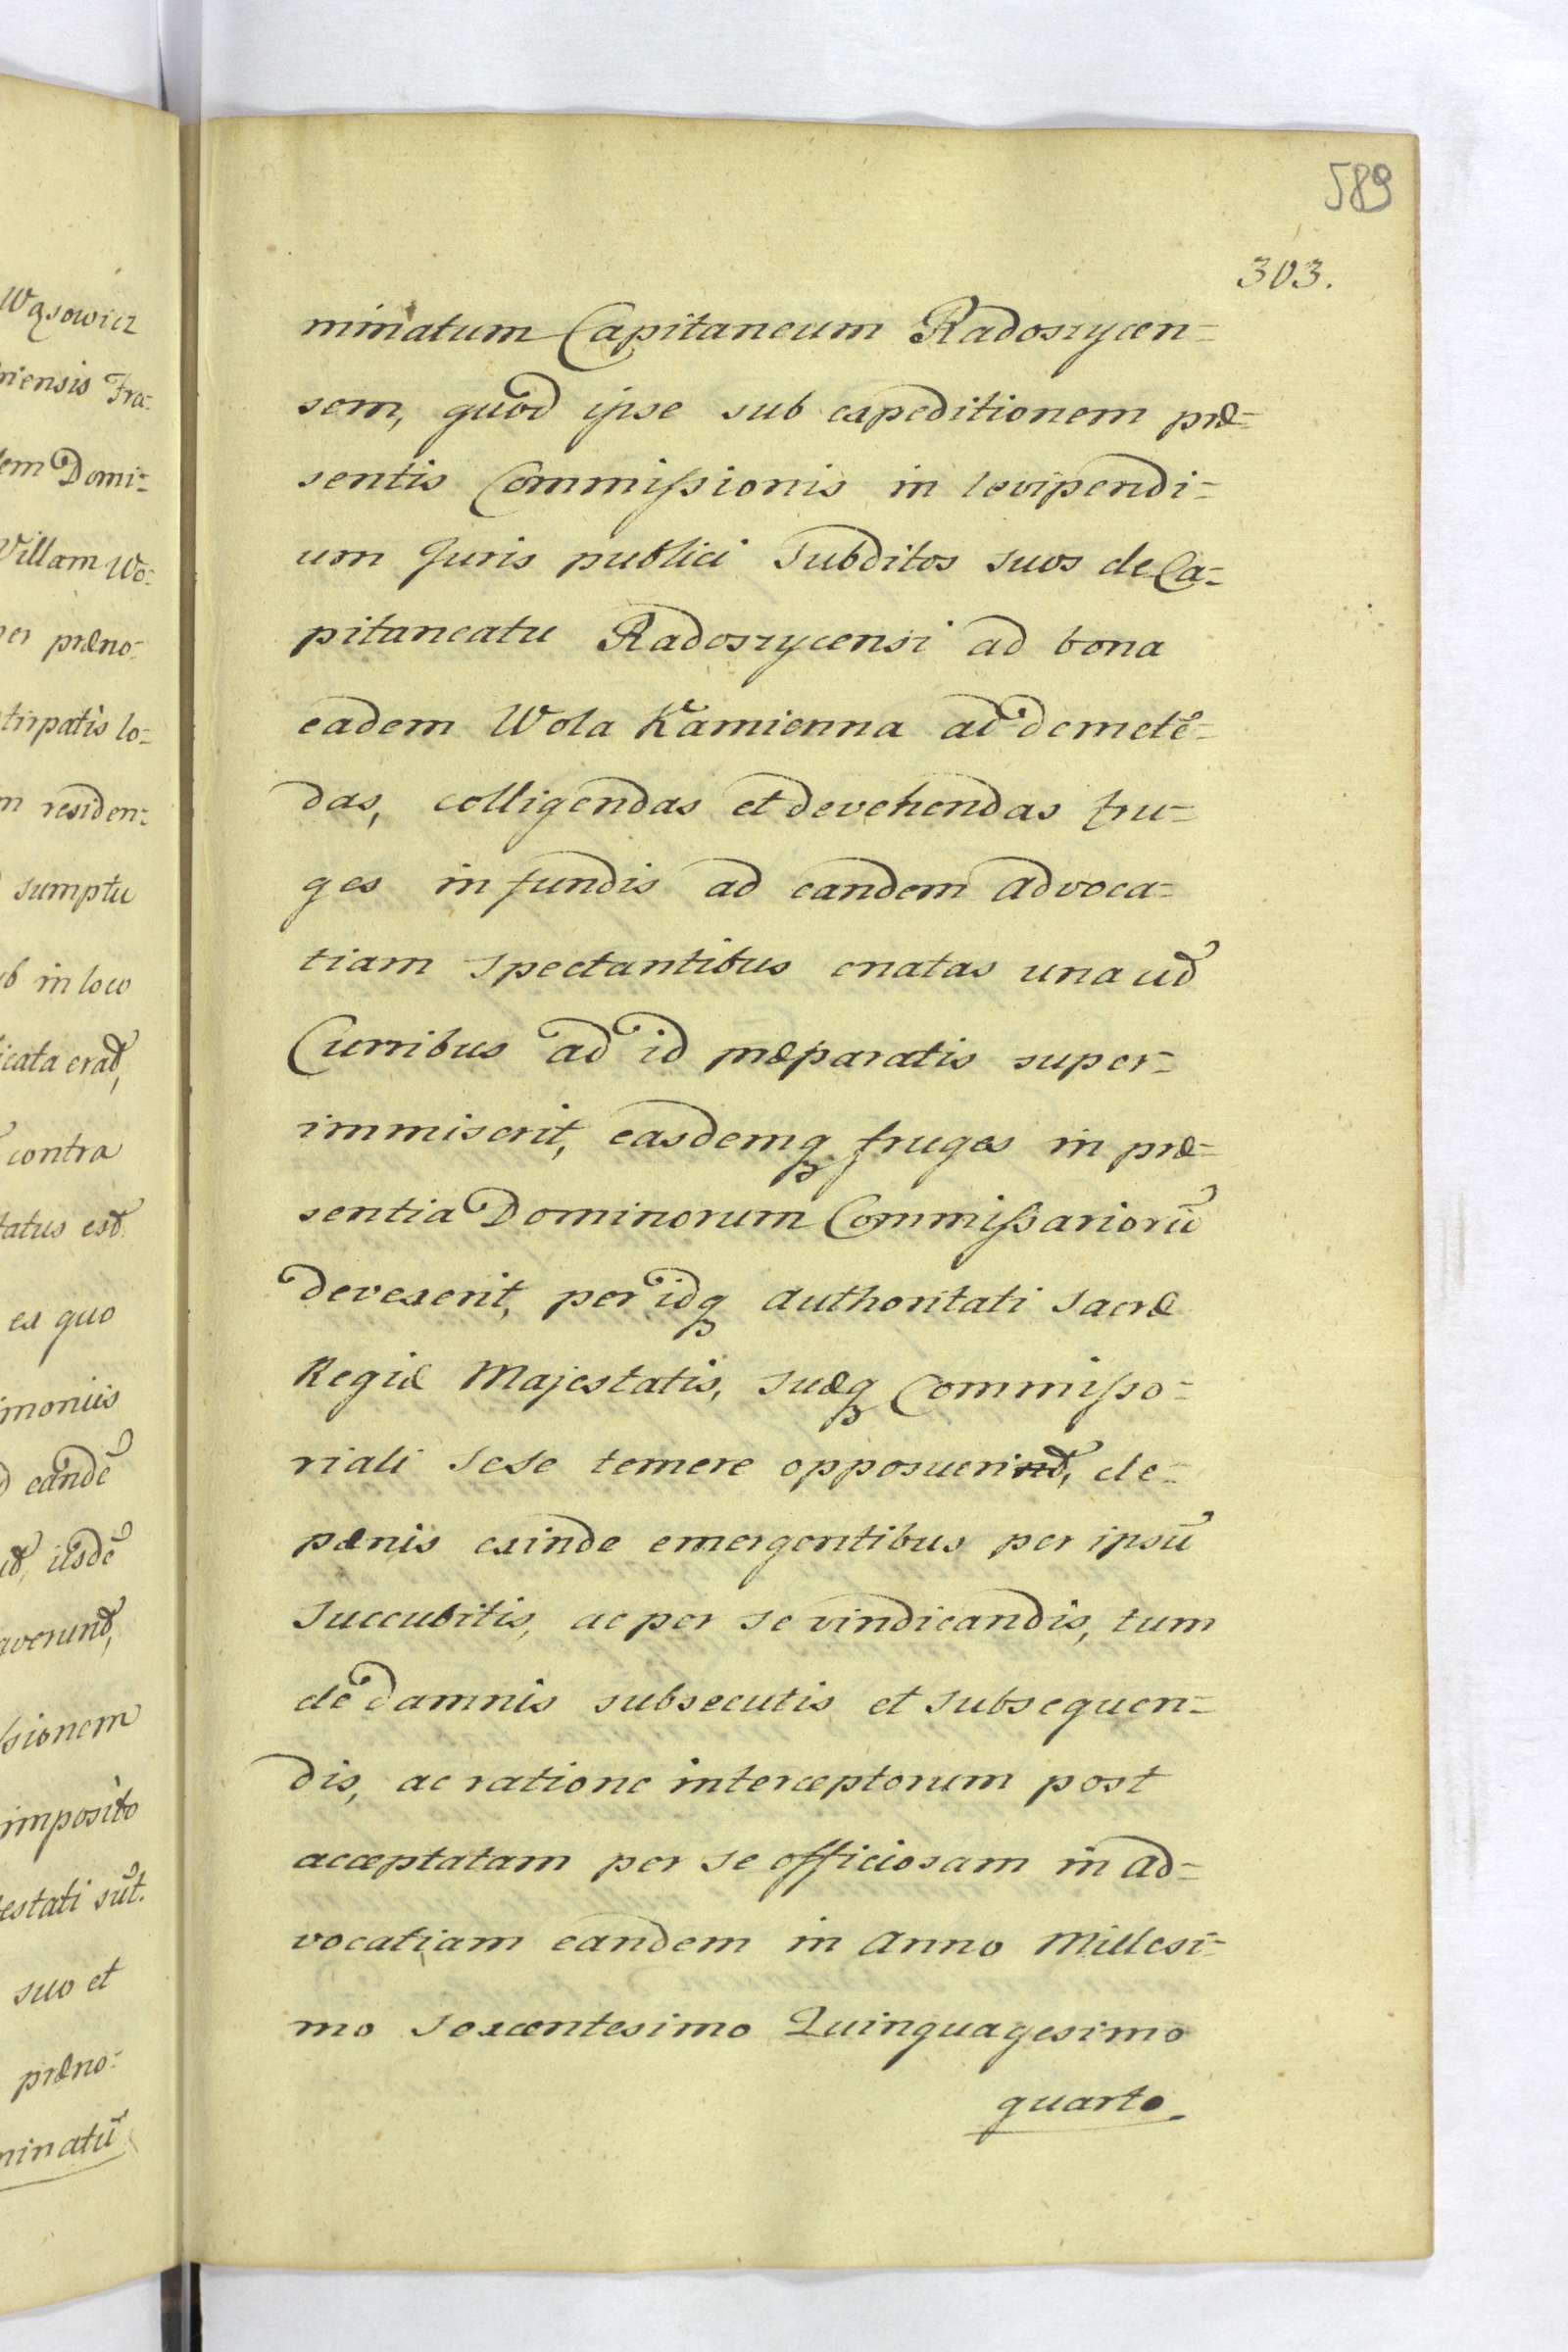 Wąsowicz
niensis Fra=
dem Domi=
Villam Wo=
per præno=
tirpatis lo=
m residen=
sumptu
ub in loco
licata erat,
contra
tatus est.
ex quo
imoniis
d eandē
iisdē
averunt,
ssionem
imposito
testati sūt.
suo et
præno=
minatū
589
303.
minatum Capitaneum Radoszycen=
sem, quod ipse sub expeditionem præ=
sentis Commissionis in levipendi=
um Juris publici Subditos suos de Ca=
pitaneatu Radoszycensi ad bona
eadem Wola Kamienna ad demetē=
das, colligendas et devehendas fru=
ges in fundis ad eandem advoca=
tiam spectantibus enatas una cū
Curribus ad id præparatis super=
immiserit, easdemq fruges in præ=
sentia Dominorum Commissariorū
devexerit, per idq authoritati Sacræ
Regiæ Majestatis, suæq Commisso=
riali sese temere opposuerint, de=
pænis exinde emergentibus per ipsū
succubitis, ac per se vindicandis, tum
de damnis subsecutis et subsequen=
dis, ac ratione interceptorum post
acceptatam per se officiosam in ad=
vocatiam eandem in Anno Millesi=
mo Sexcentesimo Quinquagesimo
quarto